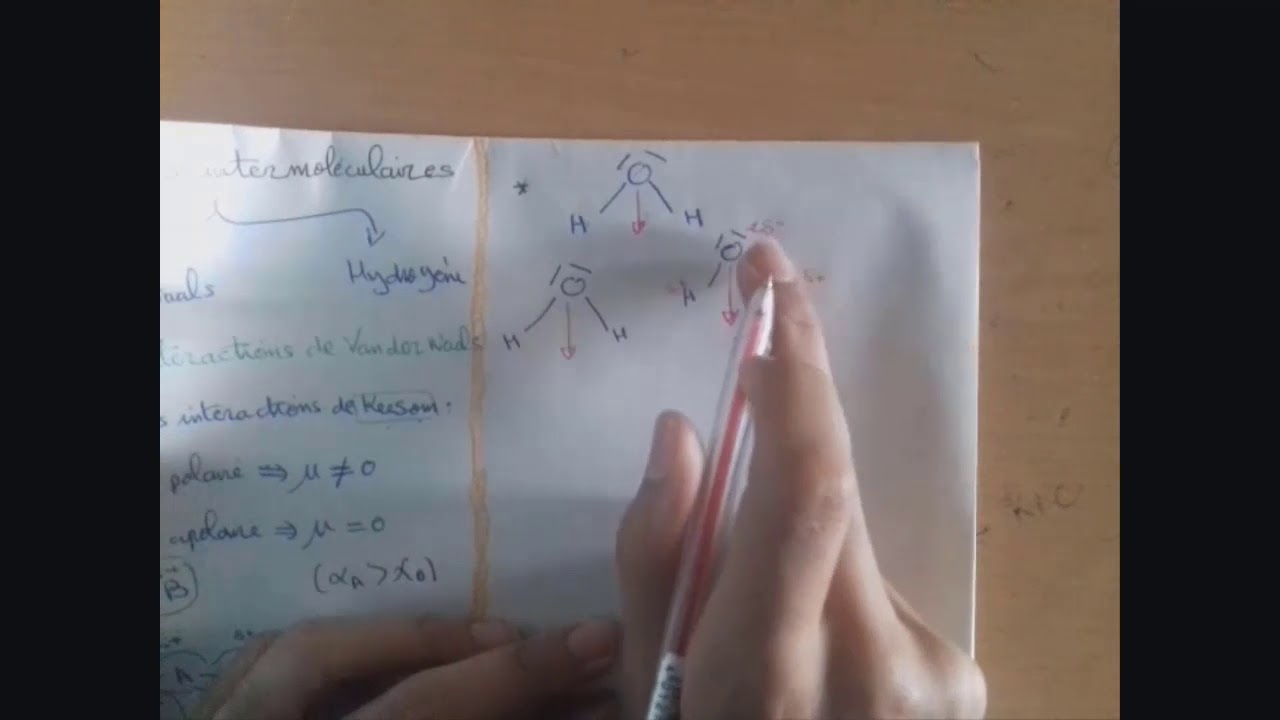 intermoléculaires
Hydrogène
aals
téractions de Vander Wals
s interactions de Keesom :
polaire ⇒ μ ≠ 0
apolaire ⇒ μ = 0
B
(αA > XB)
δ+
A
*
O
H H
O
2δ-
H
δ+
O
H H